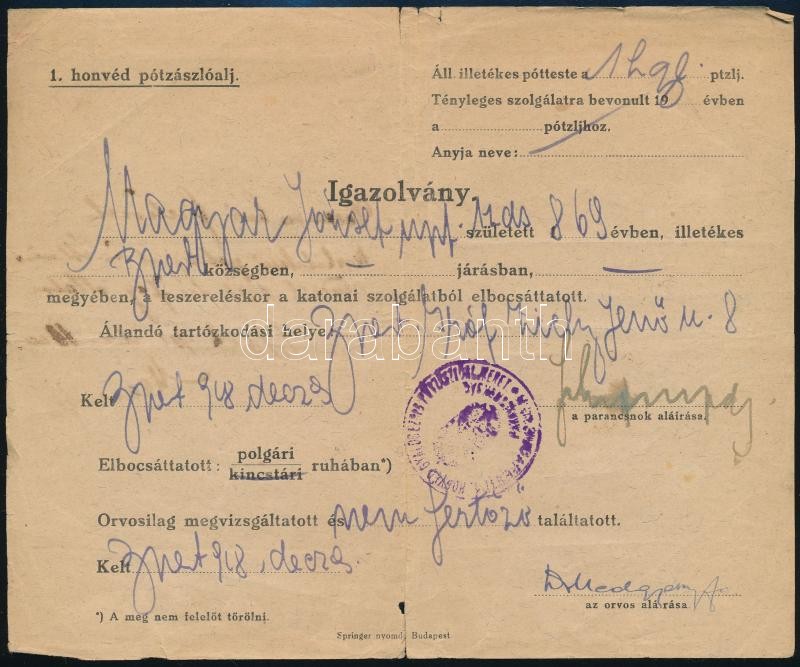 1. honvéd pótzászlóalj.
Áll. illetékes pótteste a 1 hgy. ptzlj.
Tényleges szolgálatra bevonult 19 évben
a pótzljhoz.
Anyja neve:
Igazolvány.
Magyar József npf. született 869 évben, illetékes
Bpest községben, járásban,
megyében, a leszereléskor a katonai szolgálatból elbocsáttatott.
Állandó tartózkodási helye Bpest Gróf Zichy Jenő u. 8
Kelt Bpest 918 decz
a parancsnok aláírása.
Elbocsáttatott: polgári
kincstári ruhában*)
Orvosilag megvizsgáltatott és nem fertőző találtatott.
Kelt Bpest 918. decz
az orvos aláírása
*) A meg nem felelőt törölni.
Springer nyomd. Budapest
darabanth